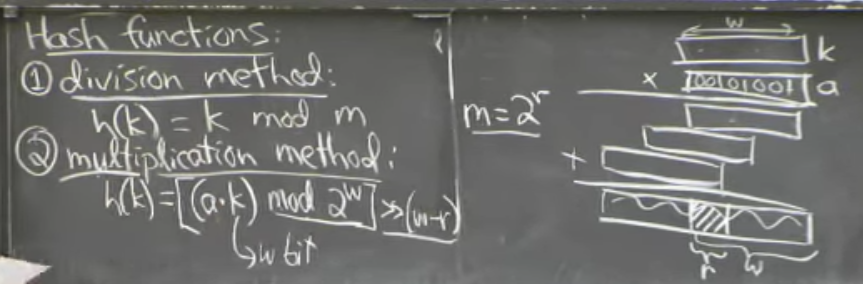 Hash functions:
① division method:
h(k) = k mod m
② multiplication method:
h(k) = [(a·k) mod 2^w] ≫ (w-r)
↳ w bit
m = 2^r
w
k
× 100101001 a
+
r w